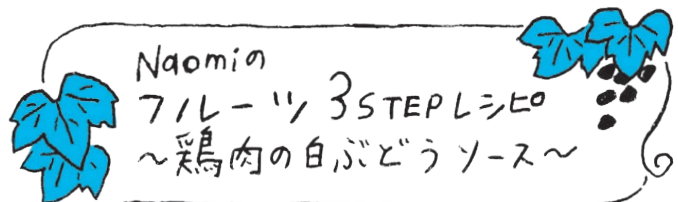 Naomiの
フルーツ 3STEPレシピ
～鶏肉の白ぶどうソース～